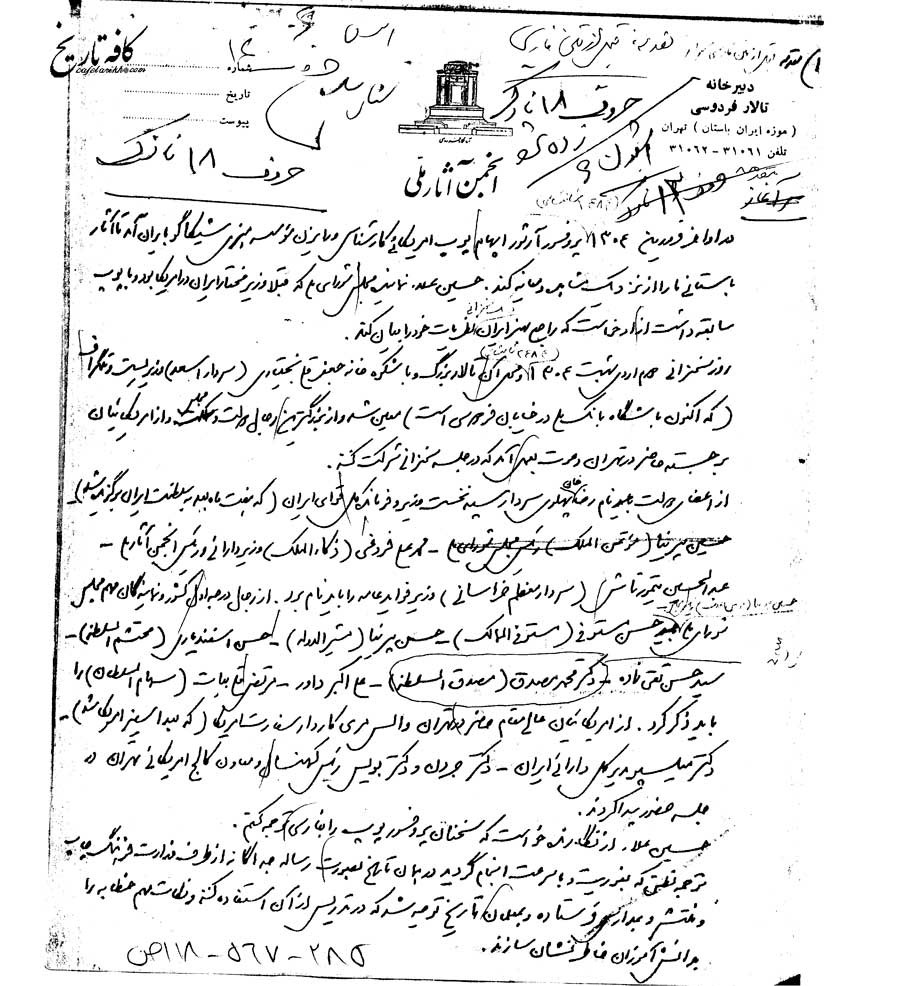 کافه تاریخ
cafetarikh.com
شماره
تاریخ
پیوست
۱) مقدمه
دبیرخانه
تالار فردوسی
( موزه ایران باستان ) تهران
تلفن ۳۱۰۶۱-۳۱۰۶۲
انجمن آثار ملی
حروف ۱۸ نازک
حروف ۱۸ نازک
آغاز
در اواخر فروردین ۱۳۰۴ پروفسور آرتور ایهام پوپ امریکائی کارشناس و رایزن مؤسسه هنری شیکاگو بایران آمد تا آثار
باستانی ما را از نزدیک مشاهده و معاینه کند. حسین علاء نماینده مجلس شورای ملی که قبلا وزیر مختار ایران در امریکا بود و با پوپ
سابقه داشت از او خواست که راجع بهنر ایران نظریات خود را بیان کند.
روز سخنرانی دوم اردیبهشت ۱۳۰۴ و محل آن تالار بزرگ و با شکوه خانه جعفرقلی بختیاری (سردار اسعد) وزیر پست و تلگراف
(که اکنون باشگاه بانک ملی در خیابان فردوسی است) معین شد و از بزرگترین رجال دولت و مجلس و از امریکائیان
برجسته حاضر در تهران دعوت بعمل آمد که در جلسه سخنرانی شرکت کنند.
از اعضای دولت باید نام رضا خان پهلوی سردار سپه نخست وزیر و فرمانده کل قوای ایران (که هفت ماه بعد به سلطنت ایران برگزیده شد)-
حسین پیرنیا (مؤتمن الملک) رئیس مجلس شورای ملی - محمد علی فروغی (ذکاء الملک) وزیر دارائی و رئیس انجمن آثار ملی -
عبدالحسین تیمورتاش (سردار معظم خراسانی) وزیر فواید عامه را باید نام برد. از رجال درجه اول کشور و نمایندگان مهم مجلس
شورای ملی حسن مستوفی (مستوفی الممالک) - حسن پیرنیا (مشیر الدوله) - حسن اسفندیاری (محتشم السلطنه) -
سید حسن تقی زاده - دکتر محمد مصدق (مصدق السلطنه) - علی اکبر داور - مرتضی قلی بیات (سهام السلطان) را
باید ذکر کرد. از امریکائیان عالی مقام حاضر در تهران والس مری کاردار سفارت امریکا (که بعدا سفیر امریکا شد) -
دکتر میلسپو مدیر کل دارائی ایران - دکتر جردن و دکتر بویس رئیس کهنسال و معاون کالج امریکائی تهران در
جلسه حضور پیدا کردند.
حسین علاء از نگارنده خواست که سخنان پروفسور پوپ را بفارسی ترجمه کنم.
ترجمه نطقی که بضرورت و با سرعت انجام گردید در همان تاریخ بصورت رساله جداگانه از طرف وزارت فرهنگ چاپ
و منتشر و بمدارس فرستاده و بمعلمان تاریخ توصیه شد که در تدریس از آن استفاده کنند و نکات مهم خطابه را
بدانش آموزان خاطر نشان سازند.
۲۸۵-۵۶۷-۱۱۸ص